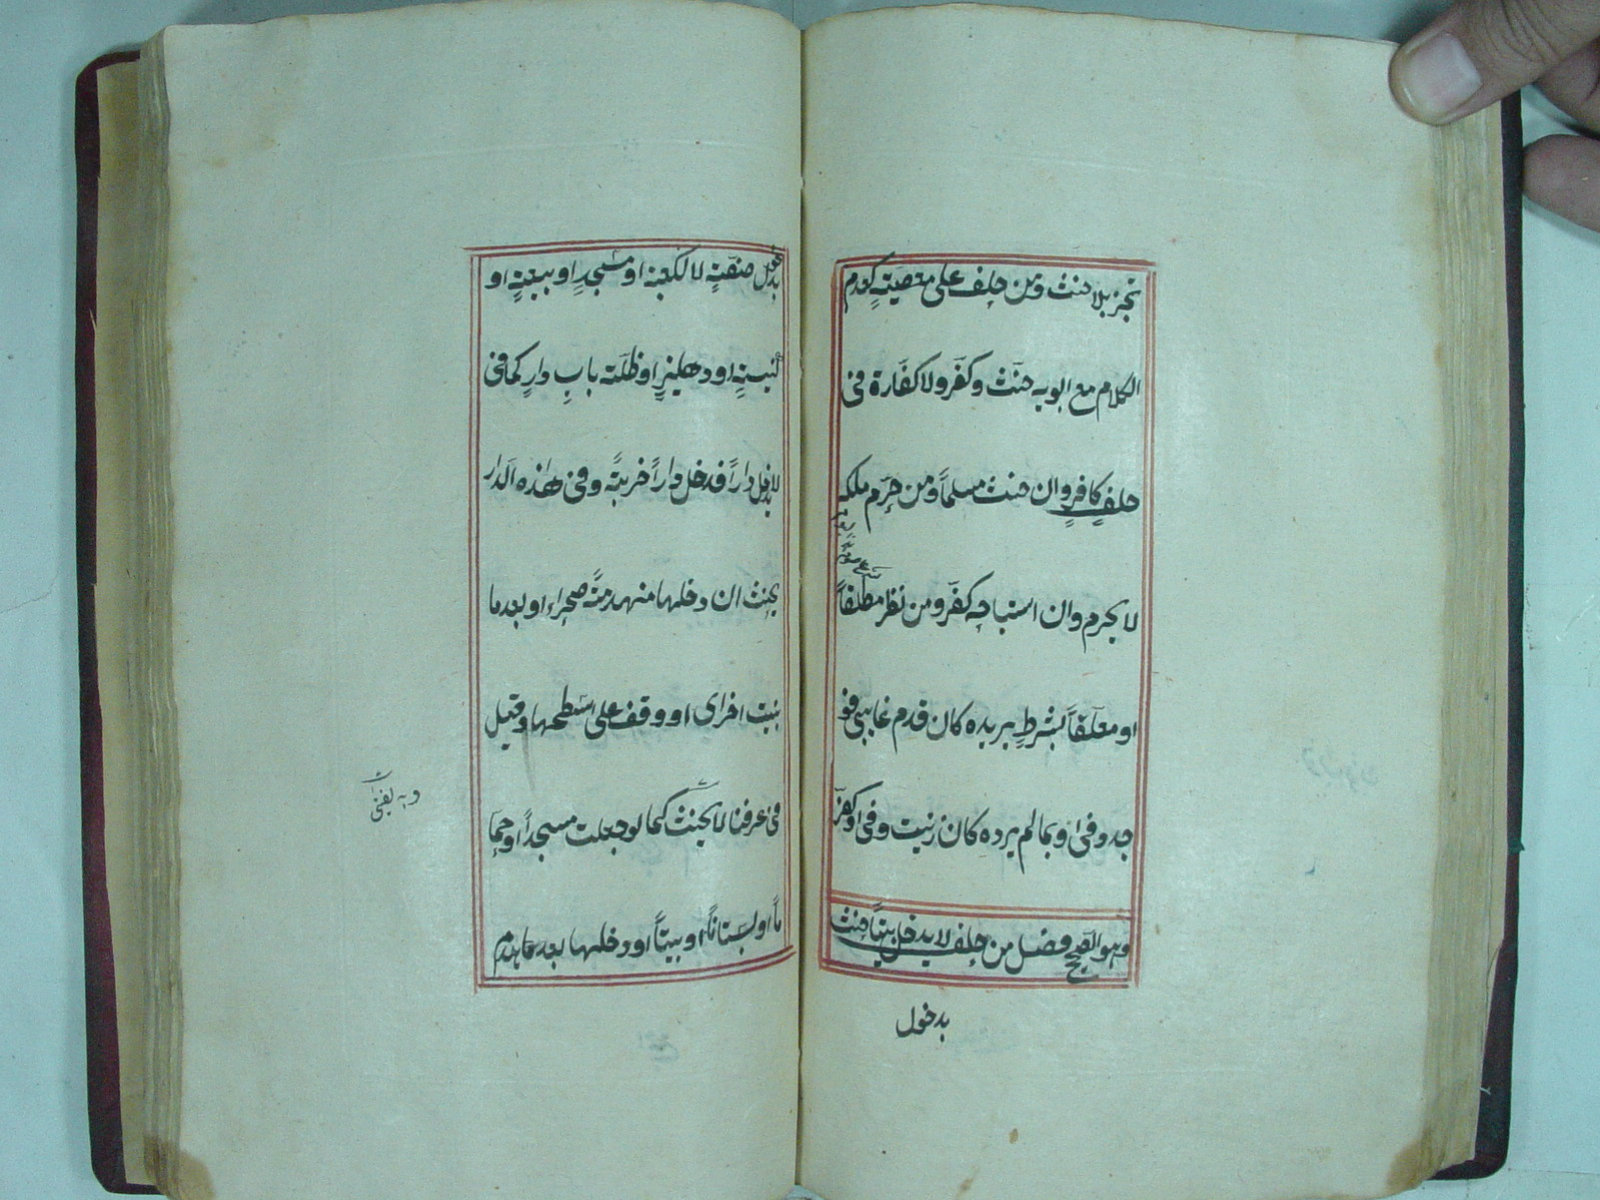 تجز بلا حنث ومن حلف على معصيةٍ كعدم
الكلام مع ابويه حنث وكفّر ولا كفّارة فى
حلفِ كافرٍ وان حنث مسلماً ومن حرّم ملكه
لا يحرم وان استباحه كفّر ومن نذر مطلقاً
او معلّقاً بشرطٍ يريده كان قدم غايبى فو
جد وفى او بما لم يرده كان زنيت وفى او كفّر
وهو الصحيح فصل من حلف لا يدخل بيتاً حنث
بدخول
بدخول صفّةٍ لا الكعبة او مسجدٍ او بيعةٍ او
كنيسةٍ او دهليزٍ او ظلّة بابِ دارٍ كما فى
لا يدخل داراً فدخل داراً خربةً وفى هذه الدار
يحنث ان دخلها منهدمةً صحراء او بعد ما
بنيت اخرى او وقف على سطحها وقيل
فى عرفنا لا يحنث كما لو جعلت مسجداً او حمّا
وبه يفتى
ماً او بستاناً او بيتاً او دخلها بعد ما هدم